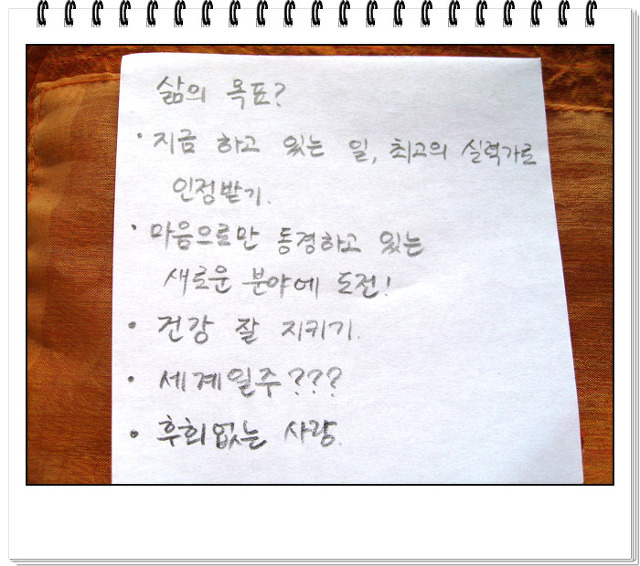 삶의 목표?
· 지금 하고 있는 일, 최고의 실력가로
인정받기.
· 마음으로만 동경하고 있는
새로운 분야에 도전!
· 건강 잘 지키기.
· 세계일주???
· 후회없는 사랑.